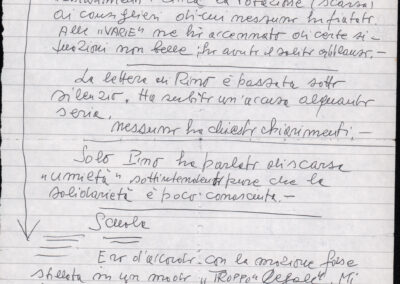 la votazione (scarsa)
di consiglieri di cui nessuno ha fiatato.
Alle "VARIE" ne ho accennato di certe si-
tuazioni non belle
La lettera di Pino è passata sotto
silenzio. Ha subito un'accusa alquanto
seria.
nessuno ha chiesto chiarimenti. –
Solo Pino ha parlato di scarsa
"umiltà" sottintendendo pure che la
solidarietà è poco conosciuta. –
Scuola
Ero d'accordo con la mozione forse
stilata in un modo "TROPPO" legale". Mi